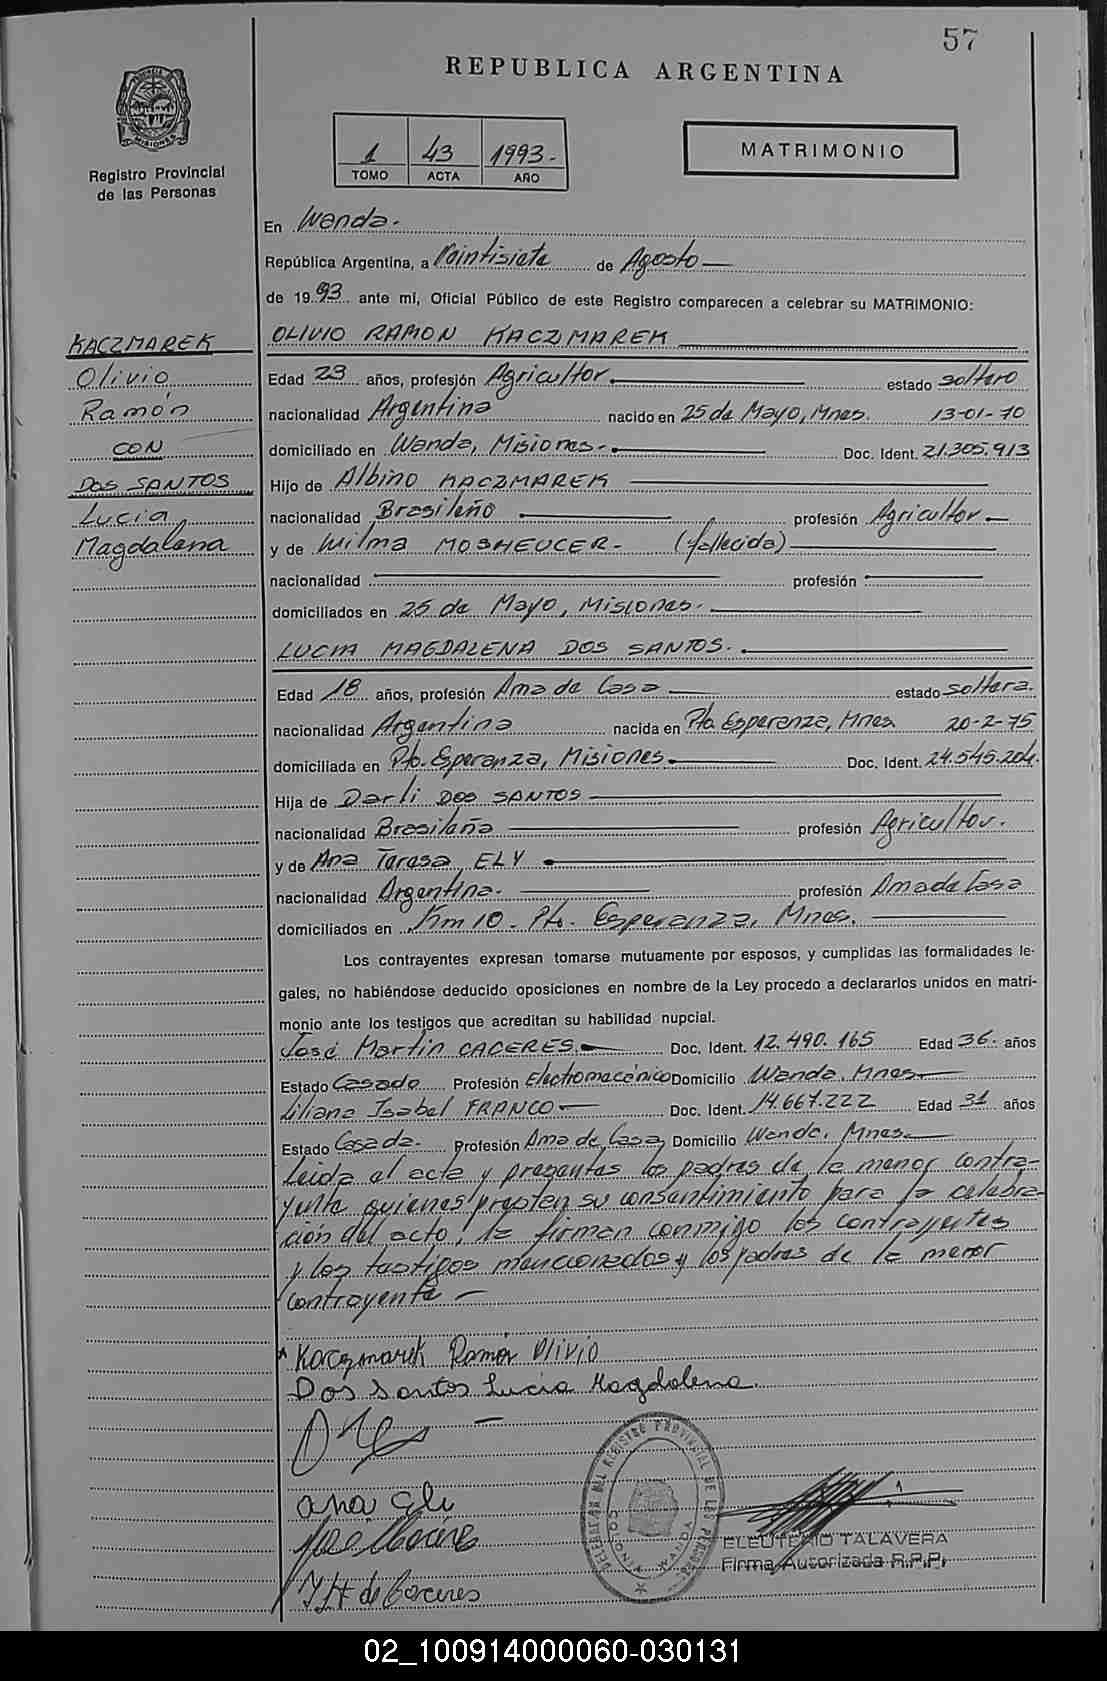 57
REPUBLICA ARGENTINA
PROVINCIA DE
MISIONES
Registro Provincial
de las Personas
1 43 1993.-
TOMO ACTA AÑO
MATRIMONIO
En Wanda.-
República Argentina, a veintisiete de Agosto —
de 1993 ante mi, Oficial Público de este Registro comparecen a celebrar su MATRIMONIO:
KACZMAREK
Olivio
Ramón
CON
DOS SANTOS
Lucia
Magdalena
OLIVIO RAMON KACZMAREK
Edad 23 años, profesión Agricultor. estado soltero
nacionalidad Argentina nacido en 25 de Mayo, Mnes. 13-01-70
domiciliado en Wanda, Misiones.- Doc. Ident. 21.305.913
Hijo de Albino KACZMAREK
nacionalidad Brasileño profesión Agricultor —
y de Wilma (fallecida)
nacionalidad profesión
domiciliados en 25 de Mayo, Misiones.
LUCIA MAGDALENA DOS SANTOS.
Edad 18 años, profesión Ama de Casa estado soltera.
nacionalidad Argentina nacida en Pto. Esperanza, Mnes. 20-2-75
domiciliada en Pto. Esperanza, Misiones. Doc. Ident. 24.545.204.
Hija de Darli DOS SANTOS
nacionalidad Brasileña profesión Agricultor.
y de Ana Teresa ELY
nacionalidad Argentina. profesión Ama de Casa
domiciliados en Km 10 - Pto. Esperanza, Mnes.
Los contrayentes expresan tomarse mutuamente por esposos, y cumplidas las formalidades le-
gales, no habiéndose deducido oposiciones en nombre de la Ley procedo a declararlos unidos en matri-
monio ante los testigos que acreditan su habilidad nupcial.
José Martin CACERES. Doc. Ident. 12.490.165 Edad 36. años
Estado Casado Profesión Electromecánico Domicilio Wanda. Mnes.
Liliana Isabel FRANCO Doc. Ident. 14.667.222 Edad 31 años
Estado Casada. Profesión Ama de Casa Domicilio Wanda, Mnes.
Leida el acta y presentes los padres de la menor contra-
yente quienes presten su consentimiento para la celebra-
ción del acto, la firman conmigo los contrayentes
y los testigos mencionados y los padres de la menor
contrayente —
Kaczmarek Ramón Olivio
Dos Santos Lucia Magdalena.
ana Eli
de Caceres
DELEGACION DEL REGISTRO PROVINCIAL DE LAS PERSONAS
MISIONES WANDA
ELEUTERIO TALAVERA
Firma Autorizada R.P.P.
02_100914000060-030131